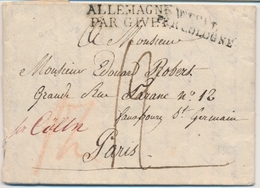 ALLEMAGNE
PAR GIVET
COLOGNE
A Monsieur
Monsieur Edouard Robert
Grande Rue Taranne n° 12
fauxbourg St Germain
Paris
pr Cöln